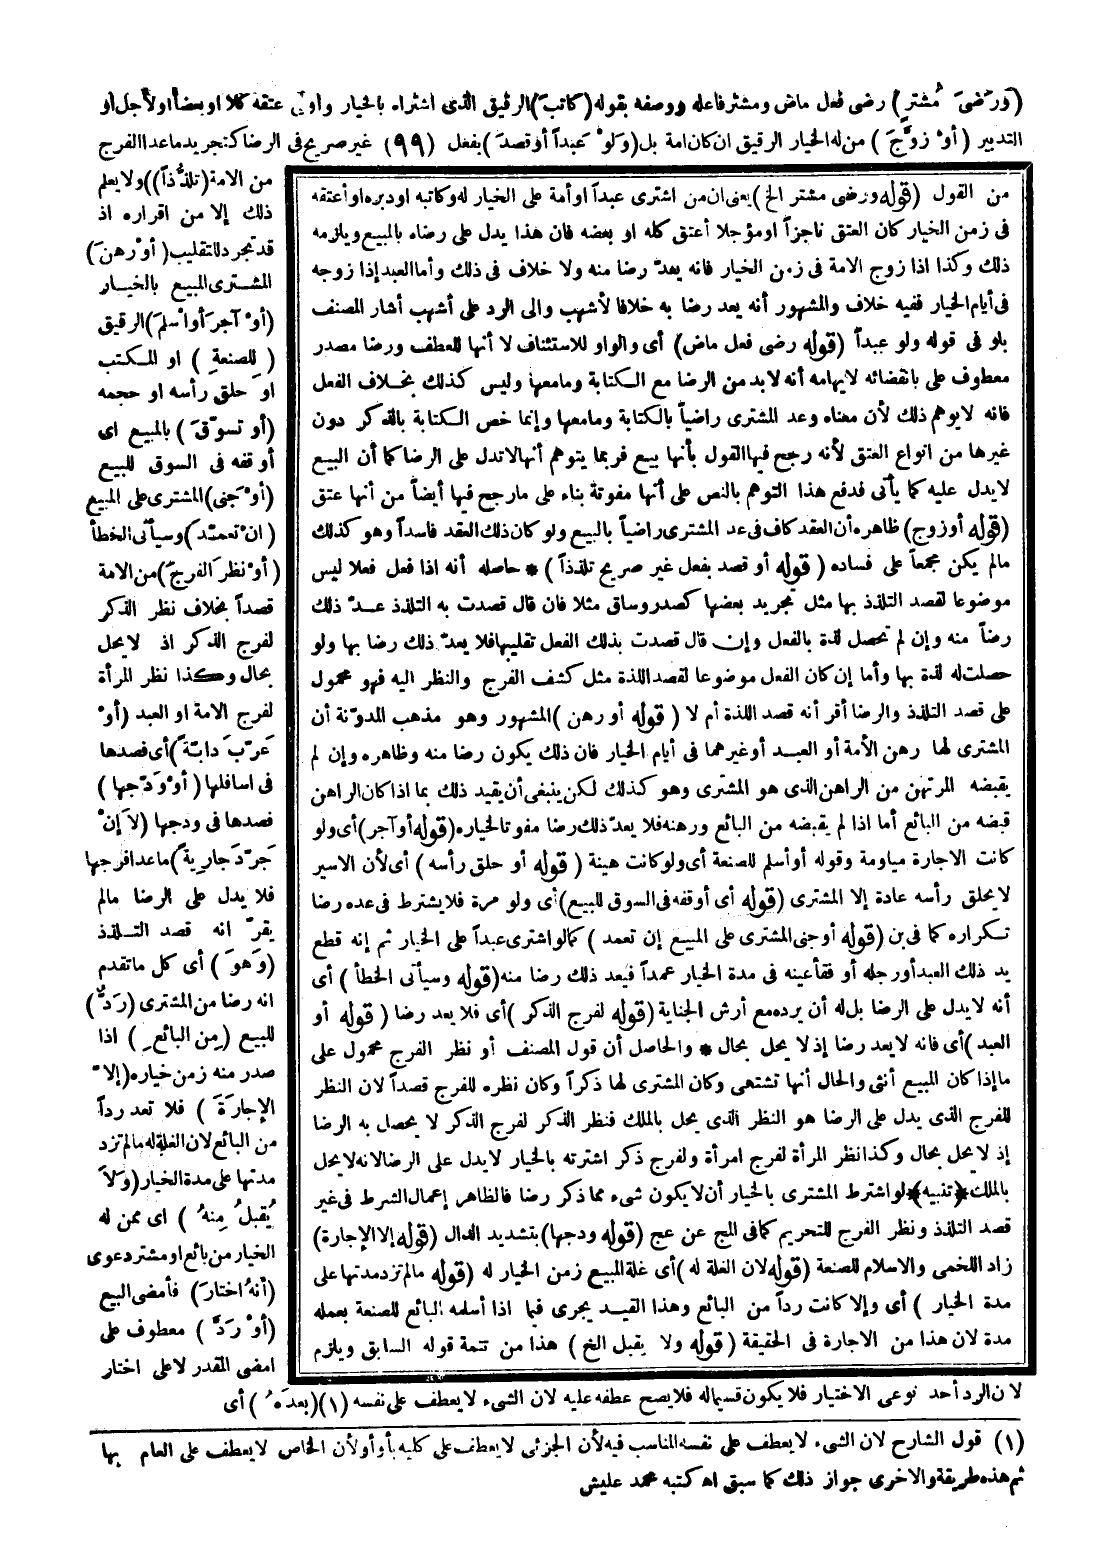 (وَرَضىَ مُشترٍ) رضى فعل ماض ومشتر فاعله ووصفه بقوله (كاتبَ) الرقيق الذى اشتراه بالخيار وأولى عتقه كلا او بعضا أولأجل أو
التدبير (أوْ زوَّجَ) من له الخيار الرقيق ان كان امة بل (ولوْ عَبداً أو قصدَ) بفعل (٩٩) غير صريح فى الرضا كتجريد ماعدا الفرج
من الامة (تلذُّذاً) ولايعلم
ذلك إلا من اقراره اذ
قد تجرد للتقليب (أوْ رهنَ)
المشترى المبيع بالخيار
(أوْ آجرَ أوأسلمَ) الرقيق
(للصنعةِ) او للمكتب
او حلق رأسه او حجمه
(أو تسوّقَ) بالمبيع اى
أوقفه فى السوق للبيع
(أوْ جَنى) المشترى على المبيع
(انْ تعمَّدَ) وسيأتى الخطأ
(أوْ نظرَ الفرجَ) من الامة
قصداً بخلاف نظر الذكر
لفرج الذكر اذ لايحل
بحال وكذا نظر المرأة
لفرج الامة او العبد (أوْ
عَرّبَ دابةً) أى فصدها
فى اسافلها (أوْ وَدّجها)
فصدها فى ودجها (لاَ إنْ
جَرّدَ جاريةً) ماعدا فرجها
فلا يدل على الرضا مالم
يقرّ انه قصد التلذذ
(وَهوَ) أى كل ماتقدم
انه رضا من المشترى (رَدٌّ)
للبيع (مِن البائعِ) اذا
صدر منه زمن خياره (إلاّ
الإجارَةَ) فلا تعد رداً
من البائع لان الغلة له مالم تزد
مدتها على مدة الخيار (وَلاَ
يُقبلُ مِنهُ) اى ممن له
الخيار من بائع او مشتر دعوى
(أنهُ اختارَ) فأمضى البيع
(أوْ رَدَّ) معطوف على
امضى المقدر لاعلى اختار
من القول (قوله ورضى مشتر الخ) يعنى ان من اشترى عبداً أو أمة على الخيار له وكاتبه او دبره او أعتقه
فى زمن الخيار كان العتق ناجزاً او مؤجلا أعتق كله او بعضه فان هذا يدل على رضاه بالمبيع ويلزمه
ذلك وكذا اذا زوج الامة فى زمن الخيار فانه يعدّ رضا منه ولا خلاف فى ذلك وأما العبد إذا زوجه
فى أيام الخيار ففيه خلاف والمشهور أنه يعد رضا به خلافا لأشهب والى الرد على أشهب أشار المصنف
بلو فى قوله ولو عبداً (قوله رضى فعل ماض) أى والواو للاستئناف لا أنها للعطف ورضا مصدر
معطوف على بانقضائه لايهامه أنه لابد من الرضا مع الكتابة ومامعها وليس كذلك بخلاف الفعل
فانه لايوهم ذلك لأن معناه وعد المشترى راضياً بالكتابة ومامعها وإنما خص الكتابة بالذكر دون
غيرها من انواع العتق لأنه رجح فيها القول بأنها بيع فربما يتوهم أنها لاتدل على الرضا كما أن البيع
لايدل عليه كما يأتى فدفع هذا التوهم بالنص على أنها مفوتة بناء على مارجح فيها أيضاً من أنها عتق
(قوله أوزوج) ظاهره أن العقد كاف فى عد المشترى راضياً بالبيع ولو كان ذلك العقد فاسداً وهو كذلك
مالم يكن مجمعاً على فساده (قوله أو قصد بفعل غير صريح تلذذاً) * حاصله أنه اذا فعل فعلا ليس
موضوعا لقصد التلذذ بها مثل تجريد بعضها كصدر وساق مثلا فان قال قصدت به التلذذ عدّ ذلك
رضاً منه وإن لم تحصل لذة بالفعل وإن قال قصدت بذلك الفعل تقليبها فلا يعدّ ذلك رضا بها ولو
حصلت له لذة بها وأما إن كان الفعل موضوعا لقصد اللذة مثل كشف الفرج والنظر اليه فهو محمول
على قصد التلذذ والرضا أقر أنه قصد اللذة أم لا (قوله أو رهن) المشهور وهو مذهب المدوّنة أن
المشترى لها رهن الأمة أو العبد أوغيرهما فى أيام الخيار فان ذلك يكون رضا منه وظاهره وإن لم
يقبضه المرتهن من الراهن الذى هو المشترى وهو كذلك لكن ينبغى أن يقيد ذلك بما اذا كان الراهن
قبضه من البائع أما اذا لم يقبضه من البائع ورهنه فلا يعدّ ذلك رضا مفوتا لخياره (قوله أو آجر) أى ولو
كانت الاجارة مياومة وقوله أوأسلم للصنعة أى ولوكانت هينة (قوله أو حلق رأسه) أى لأن الاسير
لايحلق رأسه عادة إلا المشترى (قوله أى أوقفه فى السوق للبيع) أى ولو مرة فلايشترط فى عده رضا
تكراره كما فى بن (قوله أوجنى المشترى على المبيع إن تعمد) كما لو اشترى عبداً على الخيار ثم إنه قطع
يد ذلك العبد أورجله أو فقأ عينه فى مدة الخيار عمداً فيعد ذلك رضا منه (قوله وسيأتى الخطأ) أى
أنه لايدل على الرضا بل له أن يرده مع أرش الجناية (قوله لفرج الذكر) أى فلا يعد رضا (قوله أو
العبد) أى فانه لايعد رضا إذ لا يحل بحال * والحاصل أن قول المصنف أو نظر الفرج محمول على
ما إذا كان المبيع أنثى والحال أنها تشتهى وكان المشترى لها ذكراً وكان نظره للفرج قصداً لان النظر
للفرج الذى يدل على الرضا هو النظر الذى يحل بالملك فنظر الذكر لفرج الذكر لا يحصل به الرضا
إذ لايحل بحال وكذا نظر المرأة لفرج امرأة ولفرج ذكر اشترته بالخيار لايدل على الرضا لانه لايحل
بالملك *(تنبيه)* لو اشترط المشترى بالخيار أن لايكون شىء مما ذكر رضا فالظاهر إعمال الشرط فى غير
قصد التلذذ ونظر الفرج للتحريم كما فى المج عن عج (قوله ودجها) بتشديد الدال (قوله إلا الإجارة)
زاد اللخمى والاسلام للصنعة (قوله لان الغلة له) أى غلة المبيع زمن الخيار له (قوله مالم تزد مدتها على
مدة الخيار) أى وإلا كانت رداً من البائع وهذا القيد يجرى فيما اذا أسلمه البائع للصنعة بعمله
مدة لان هذا من الاجارة فى الحقيقة (قوله ولا يقبل الخ) هذا من تتمة قوله السابق ويلزم
لان الرد أحد نوعى الاختيار فلا يكون قسيما له فلا يصح عطفه عليه لان الشىء لايعطف على نفسه (١) (بعدَهُ) أى
(١) قول الشارح لان الشىء لايعطف على نفسه المناسب فيه لأن الجزئى لايعطف على كليه بأو أو لأن الخاص لايعطف على العام بها
ثم هذه طريقة والاخرى جواز ذلك كما سبق اه كتبه محمد عليش